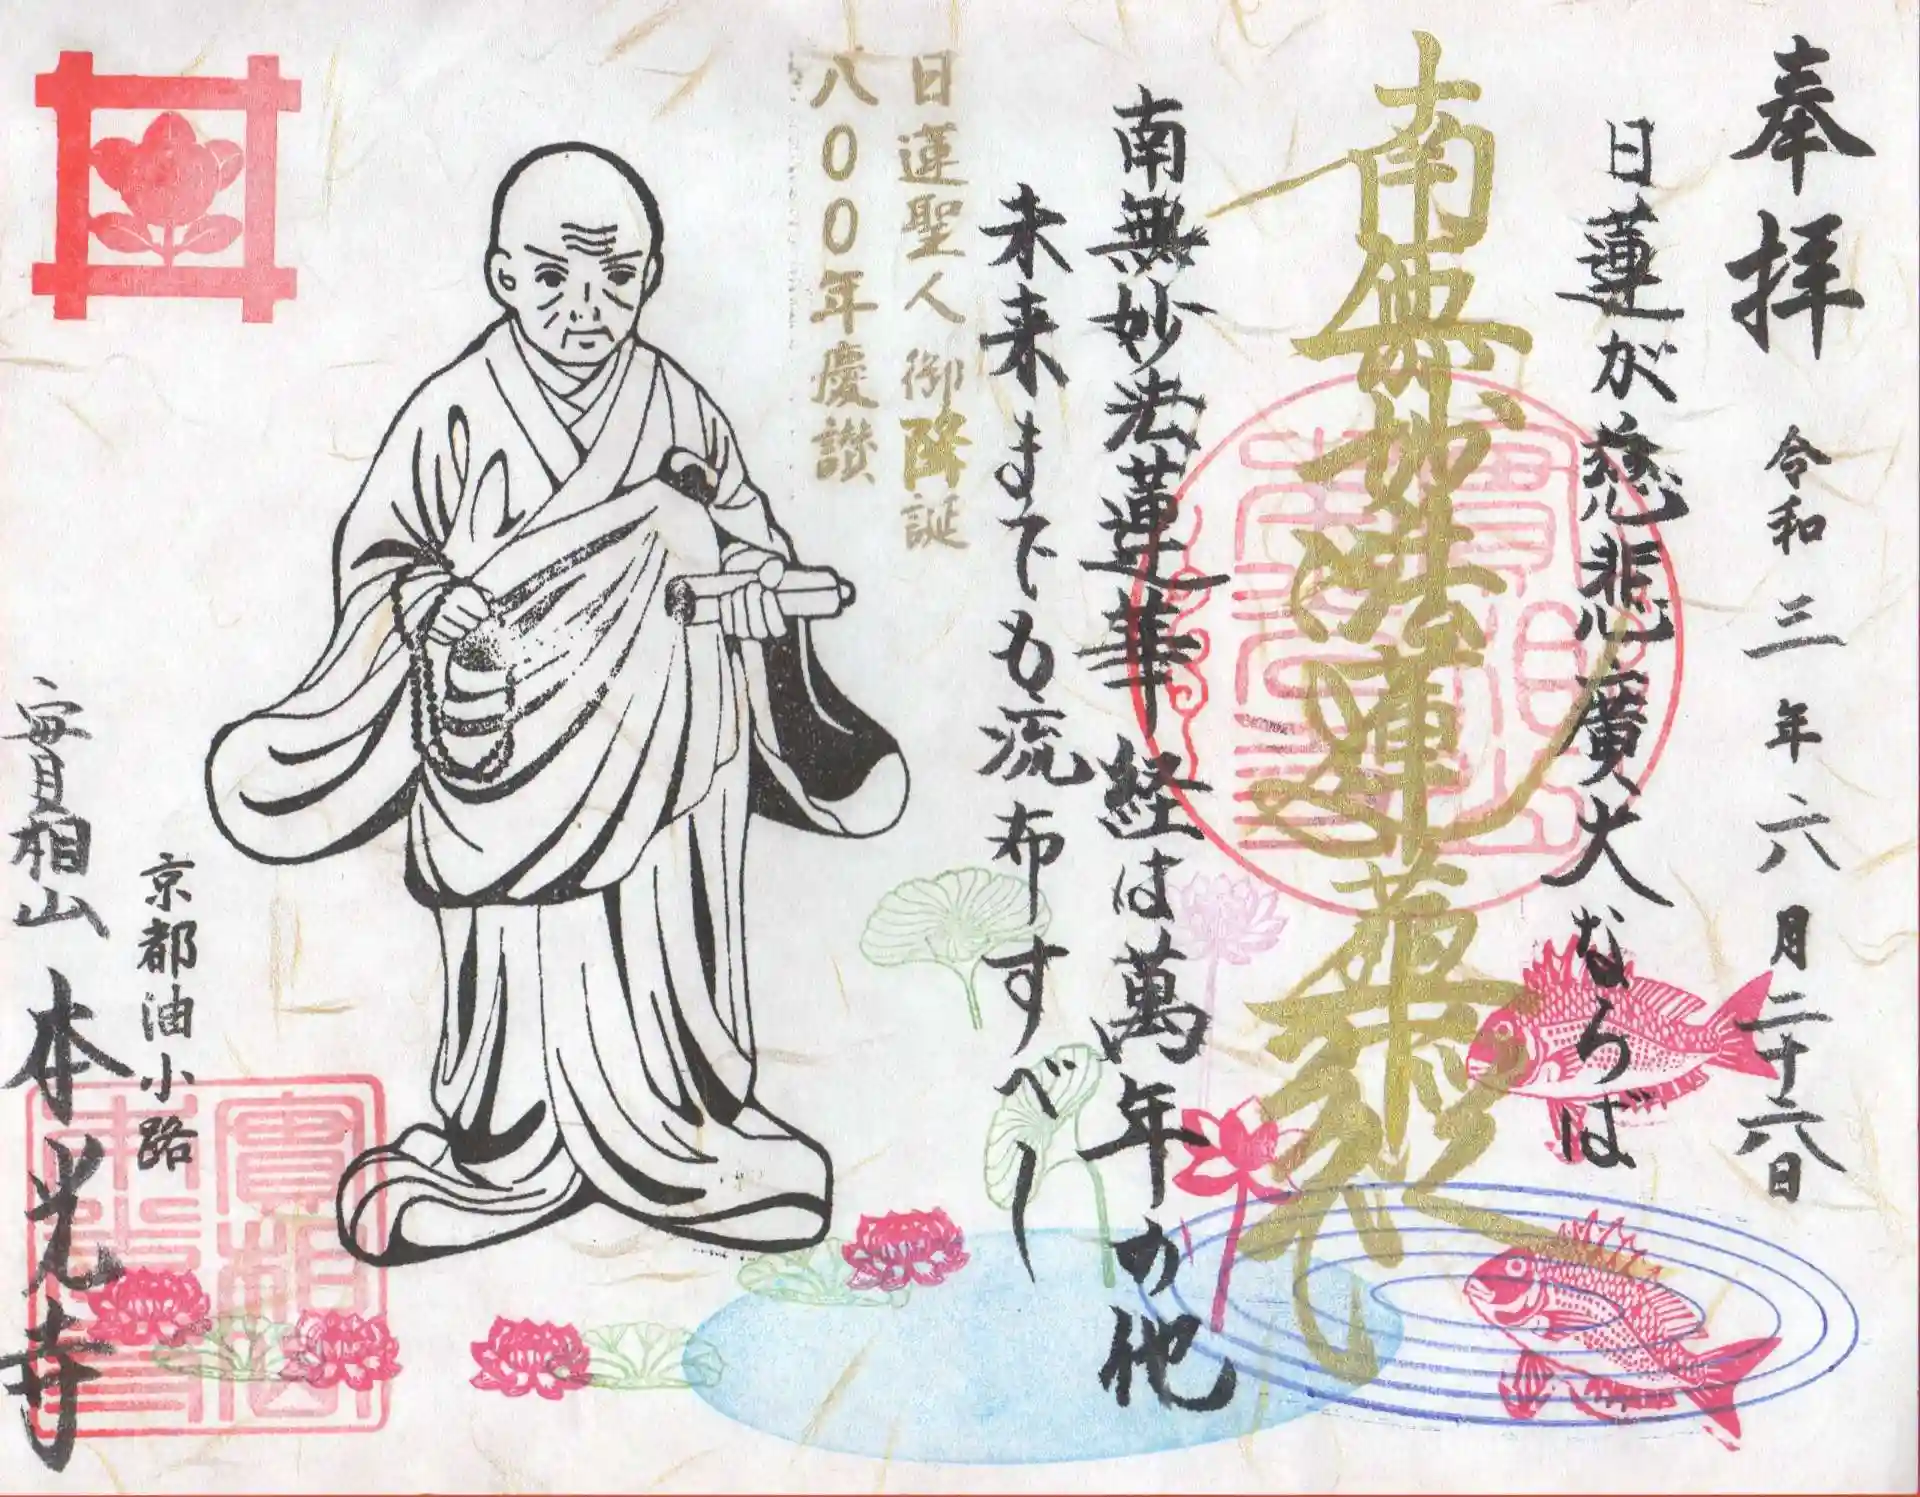 奉拝
令和三年六月二十六日
日蓮が慈悲廣大ならば
南無妙法蓮華経
南無妙法蓮華経は萬年の他
未来までも流布すべし
日蓮聖人御降誕
八〇〇年慶讃
京都油小路
實相山
本光寺